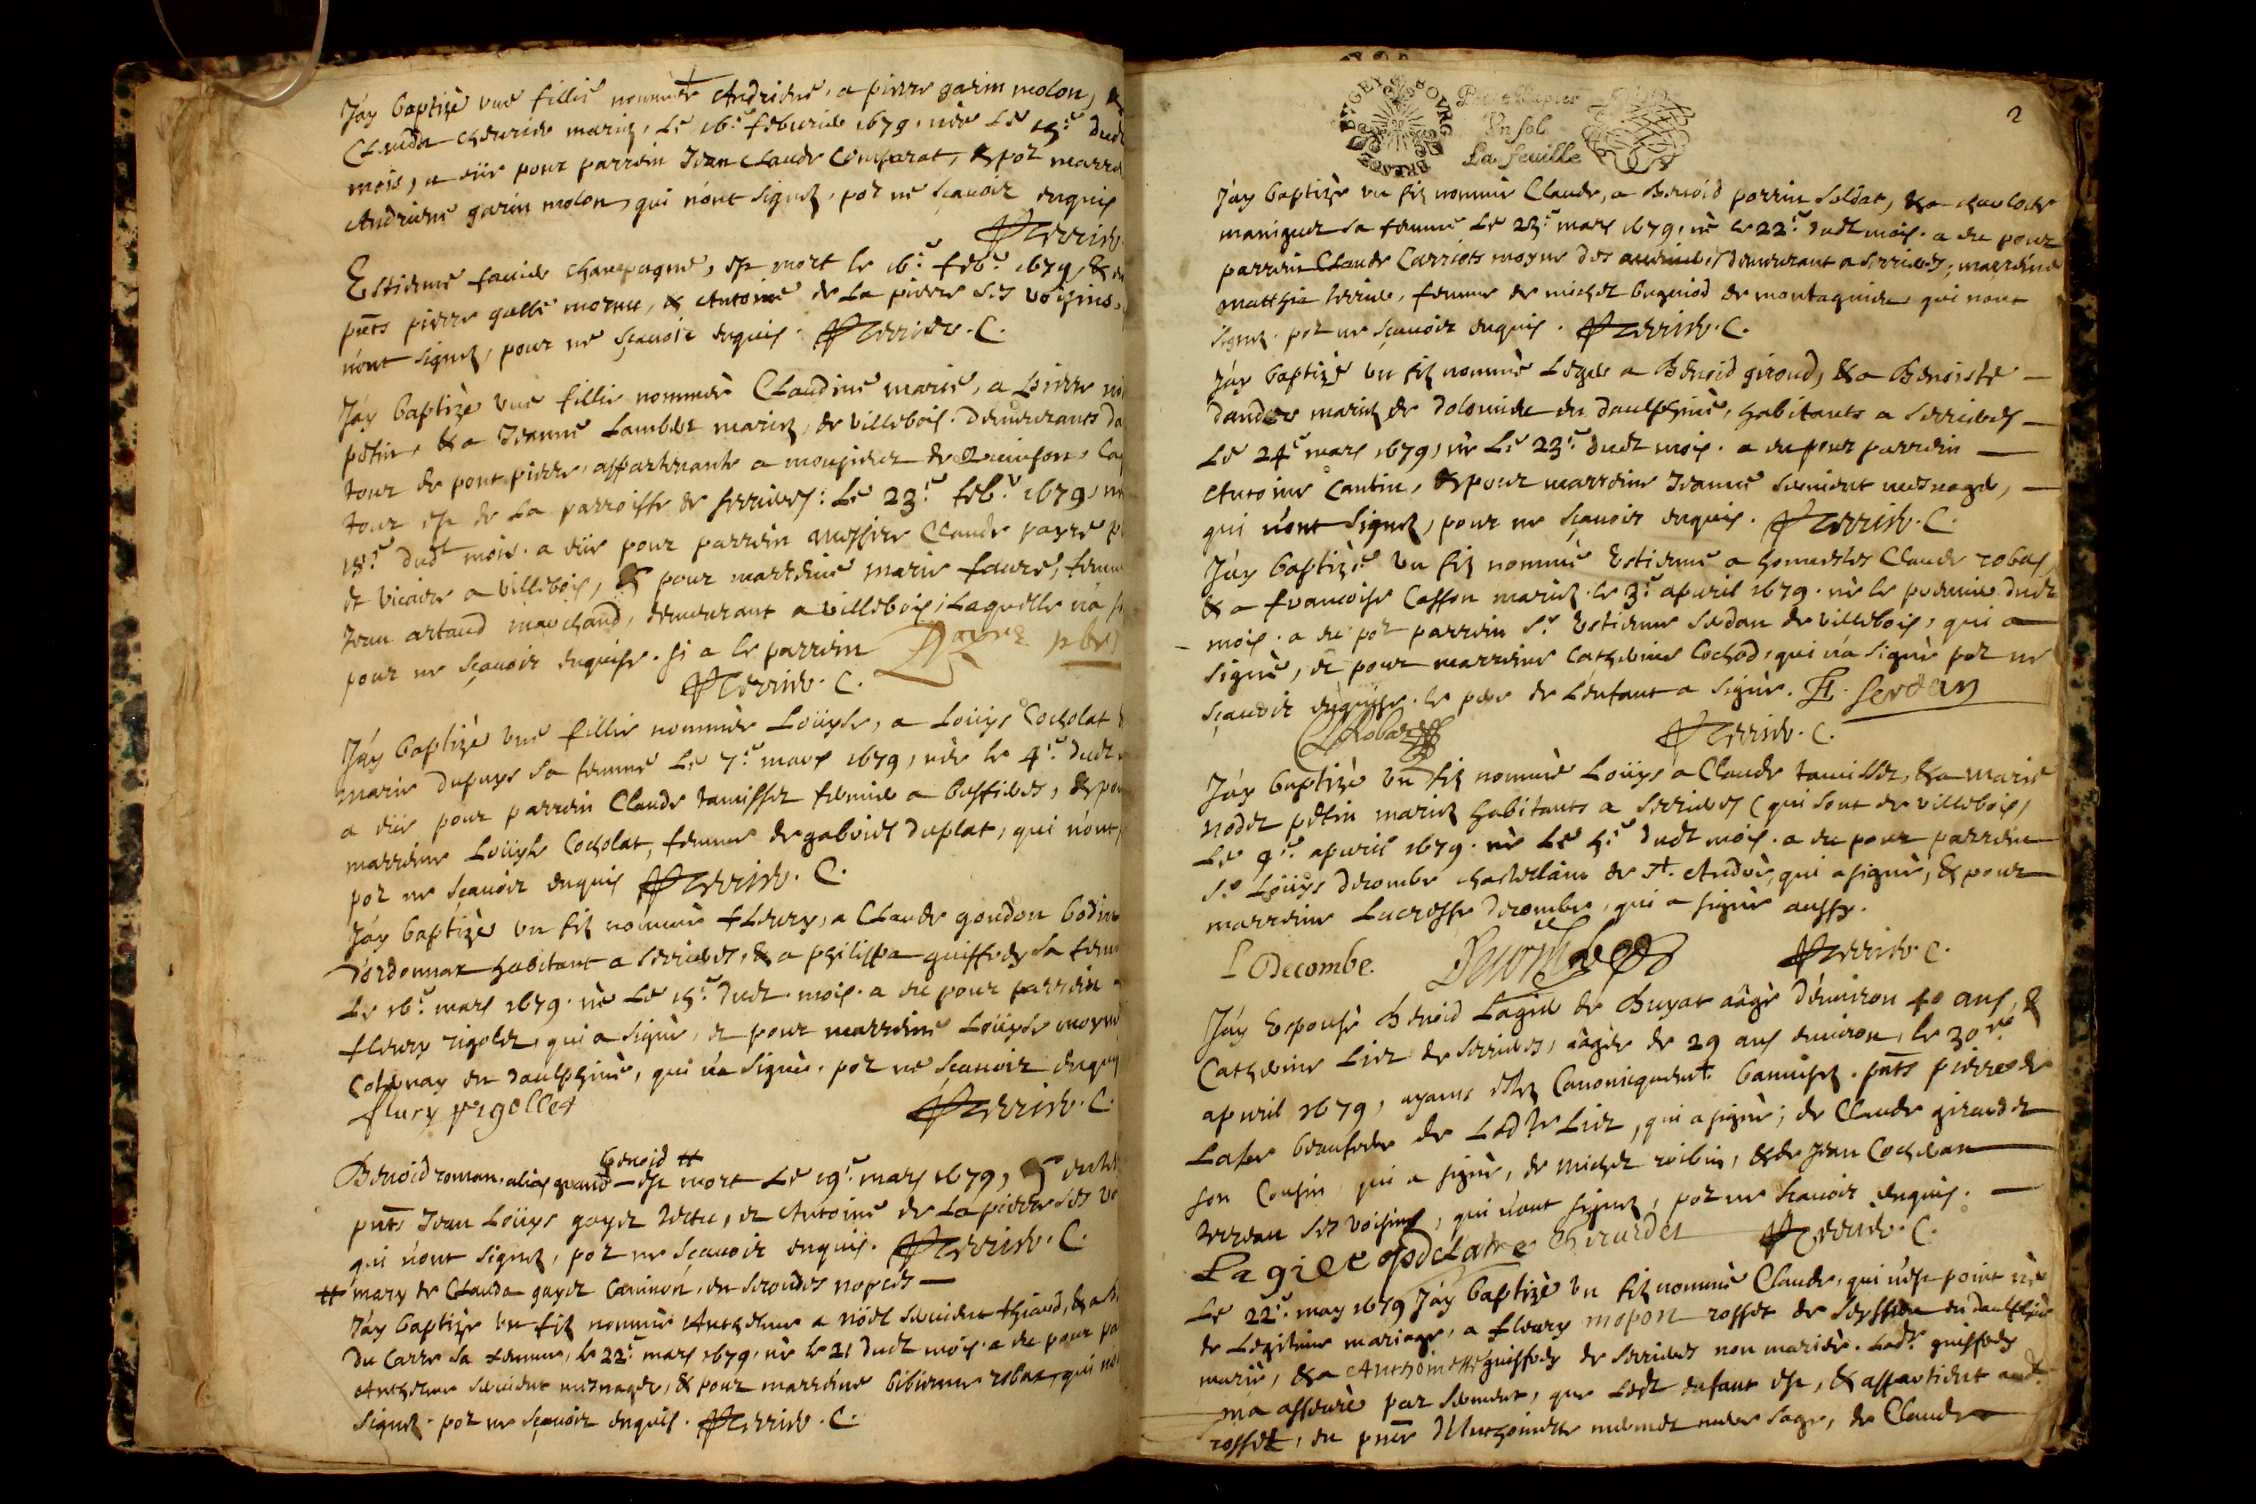 Jay baptizé une fillie nommée Andriene, a pierre garin molon, &
Clauda mariez, Le 16e feburier 1679, née Le 15e dudt
mois, a eüe pour parrein Jean Claude Comparat, & por marre
Andriene garin molon, qui n'ont signez, por ne sçavoir enquis
Estienne favier champagne, est mort le 16e feb. 1679, &
pnts pierre galle mornu, & Antoine de La pierre ses voisins,
n'ont signez, pour ne sçavoir enquis. C.
Jay baptizé une fillie nommée Claudine marie, a pierre
petin, & a Jeanne Lambert mariez, de villebois. demeurants da
tour de pont pierre, appartenante a monsieur de
tour est de La parroisse de serrieres: Le 23e feb. 1679, n
18e dudt mois. a eüe pour parrein messire Claude payre p
et vicaire a villebois, & pour marreine marie faure, femm
Jean artaud marchand, demeurant a villebois; Laquelle n'a s
pour ne sçavoir enquise. si a le parrein Payre pbre
C.
Jay baptizé une fillie nommée Loüyse, a Loüys Cocholat
marie dupuys sa femme Le 7e mars 1679, née le 4e dudt
a eüe pour parrein Claude tamisset fermier a buffieres, & pou
marreine Loüyse Cocholat, femme de gabriel duplat, qui n'ont
por ne sçavoir enquis C.
Jay baptizé un filz nommé fleury, a Claude goudon bodin
d'ordonnax habitant a serrieres, & a philippa guiffrey sa femm
Le 16e mars 1679. né Le 15e dudt mois. a eu pour parrein
fleury rigolet, qui a signé, et pour marreine Loüyse moyne
en daulphiné, qui n'a signé. por ne sçavoir enquis
flury rigollet C.
benoid #
Benoid roman, alias grand est mort Le 19e mars 1679, & enter
pnts Jean Loüys gayet, et Antoine de La pierre ses vo
qui n'ont signez, por ne sçavoir enquis. C.
# mary de Clauda gayet en secondes nopces
Jay baptizé un filz nommé Anthelme a nöel
du Carre sa femme, le 22e mars 1679. né le 21 dudt mois. a eu pour pa
Anthelme mesnager, & pour marreine bibienne robat, qui n'on
signez. por ne sçavoir enquis. C.
BVGEY BOVRG BRESSE
Petit Papier
Vn sol
La feuille
2
Jay baptizé un filz nommé Claude, a Benoid perrin soldat, & a
maniguet sa femme Le 23e mars 1679, né le 22e dudt mois. a eu pour
parrein Claude Carriots moyne des demeurant a serrieres; marreine
matthia femme de michel bugniod de montagnieu qui n'ont
signez. por ne sçavoir enquis. C.
Jay baptizé un filz nommé Leger a Benoid giroud, & a Benoiste
mariez de dolomieu en daulphiné, habitants a serrieres
Le 24e mars 1679, né Le 23e dudt mois. a eu pour parrein
Antoine Cantin, & pour marreine Jeanne mesnage,
qui n'ont signez, pour ne sçavoir enquis. C.
Jay baptizé un filz nommé Estienne a Claude robat,
& a francoise Casson mariez. le 3e apuril 1679. né le premier dudt
mois. a eu por parrein Sr Estienne serdan de villebois, qui a
signé, et pour marreine Catherine Cochod, qui n'a signé por ne
sçavoir enquise. le pere de L'enfant a signé. E. Serdan
Robat C.
Jay baptizé un filz nommé Loüys a Claude tamisset, & a marie
nodet petin mariez habitants a serrieres (qui sont de villebois,
Le 9e apuril 1679. né Le 5e dudt mois. a eu pour parrein
Sr Loüys decombe chastellain de St. André, qui a signé, & pour
marreine Lucresse decombe, qui a signé aussy.
L Decombe. Decombe C.
Jay Espousé Benoid Lagier de Buyat aâgé d'environ 40 ans, &
Catherine Liet de serrieres, aâgée de 29 ans environ, le 30e
apuril 1679, ayans estez Canoniquement bannisez. pnts pierre de
Lastre beaufrere de Ladte Liet, qui a signé; de Claude girardet
son Cousin qui a signé, de michel robin, & de Jean Cocheran
ses voisins, qui n'ont signez, por ne sçavoir enquis.
Lagier p delatre Girardet C.
Le 22e may 1679 Jay baptizé un filz nommé Claude, qui n'est point né
de Legitime mariage, a fleury mopon rosset de en daulphiné
marié, & a Anthoinette guiffrey de serrieres non mariée. Ladte guiffrey
m'a asseuré par serment, que Ledt enfant est, & appartient audt
rosset, en pnce d'Anthoinette mere sage, de Claude